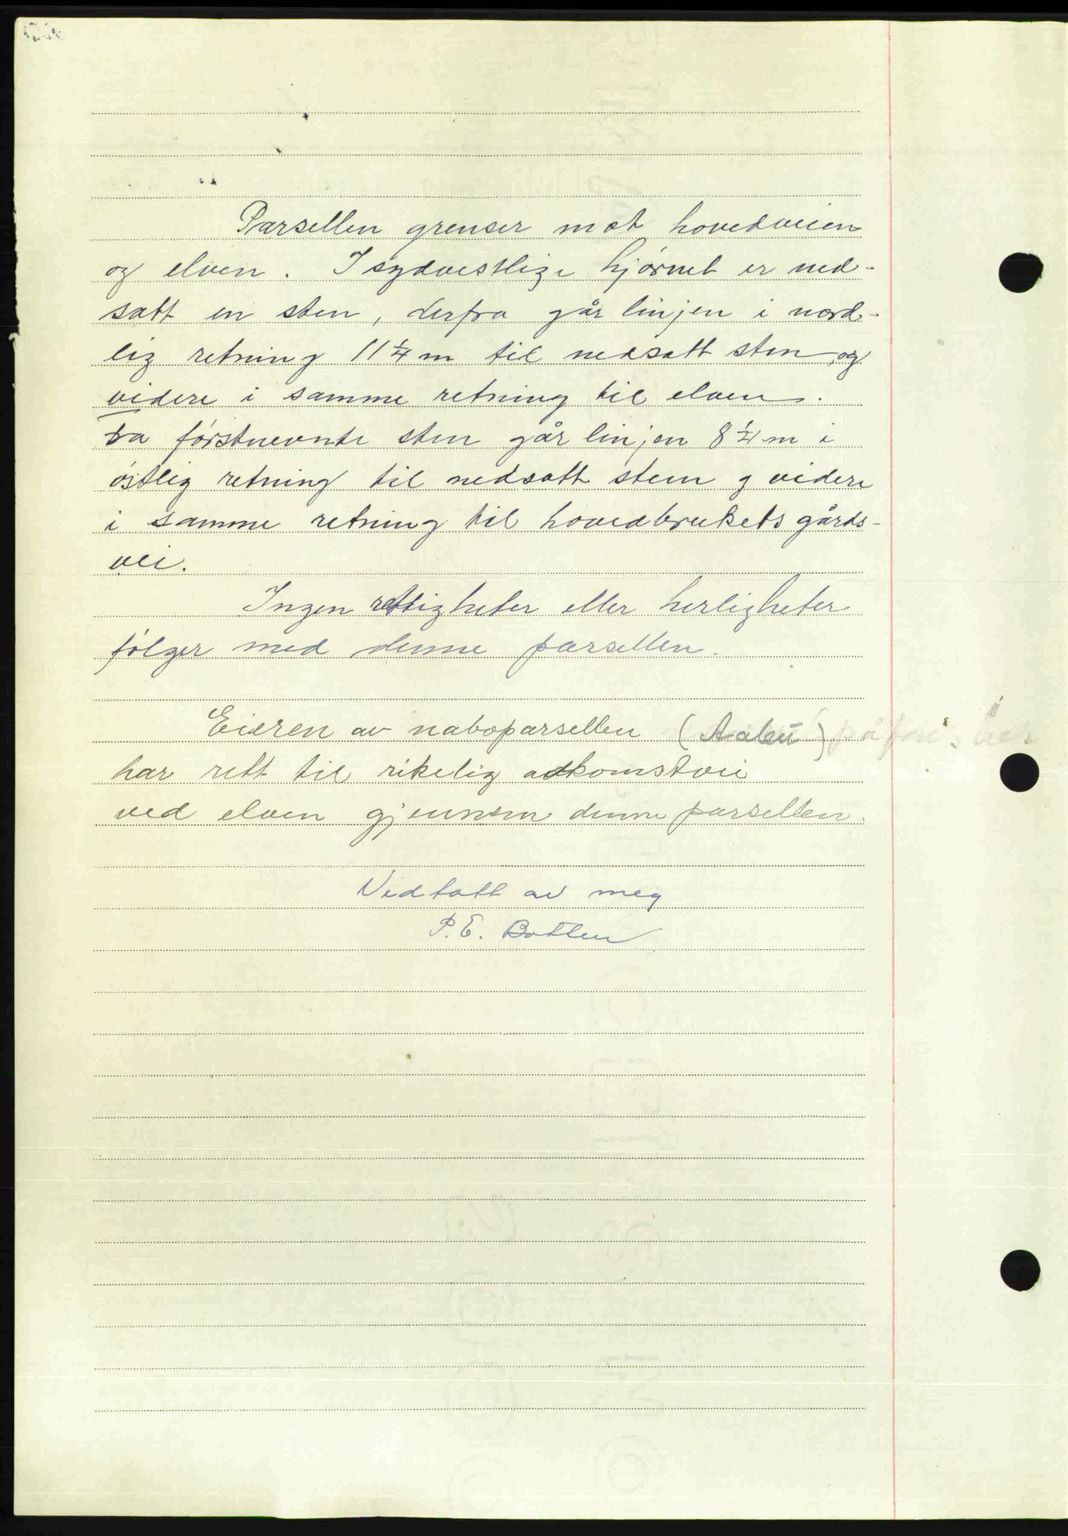 Parsellen grenser mot hovedveien
og elven. I sydvestlige hjørnet er ned-
satt en sten, derfra går linjen i nord-
lig retning 11 ¼ m til nedsatt sten og
videre i samme retning til elven.
Fra førstnevnte sten går linjen 8 ¼ m i
østlig retning til nedsatt sten og videre
i samme retning til hovedbrukets gårds-
vei.
Ingen rettigheter eller herligheter
følger med denne parsellen.
Eieren av naboparsellen
har rett til rikelig adkomstvei
ved elven gjennem denne parsellen.
Vedtatt av meg
P. E. Botten